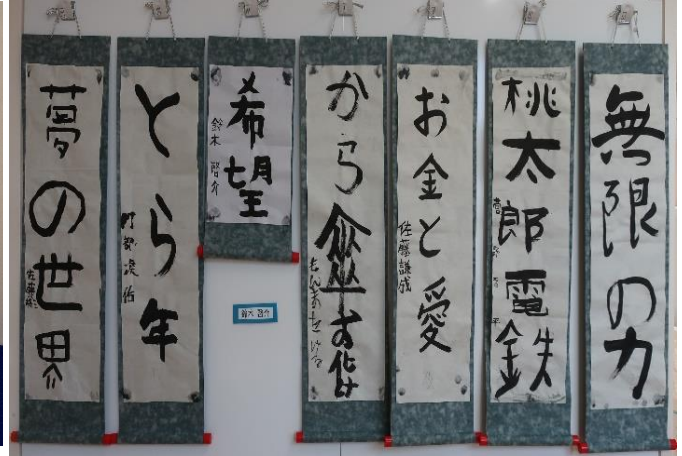 無限の力
桃太郎電鉄
お金と愛
佐藤謙成
から傘お化
希望
鈴木啓介
とら年
夢の世界